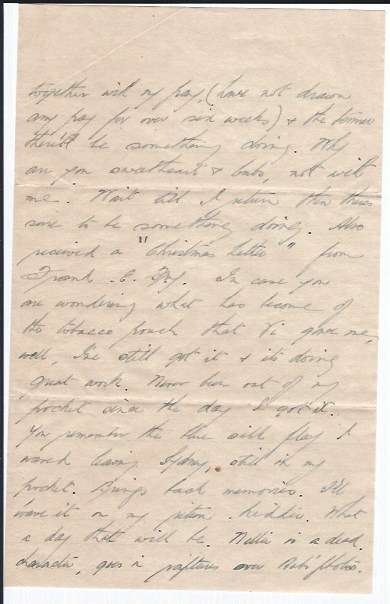 together with my pay, (have not drawn
any pay for over six weeks) & the
there'll be something doing. Why
are you sweetheart & bubs, not with
me. Wait till I return then theres
sure to be something doing. Also
received a "Christmas letter" from
Frank C. In case you
are wondering what has become of
the tobacco pouch that Vi gave me,
well, I've still got it & its doing
great work. Never been out of my
pocket since the day I got it.
You remember the blue silk flag I
waved leaving Sydney, still in my
pocket. Brings back memories. I'll
wave it on my return . What
a day that will be. Nellie in a dead
character, goes in raptures over Bubs photos.